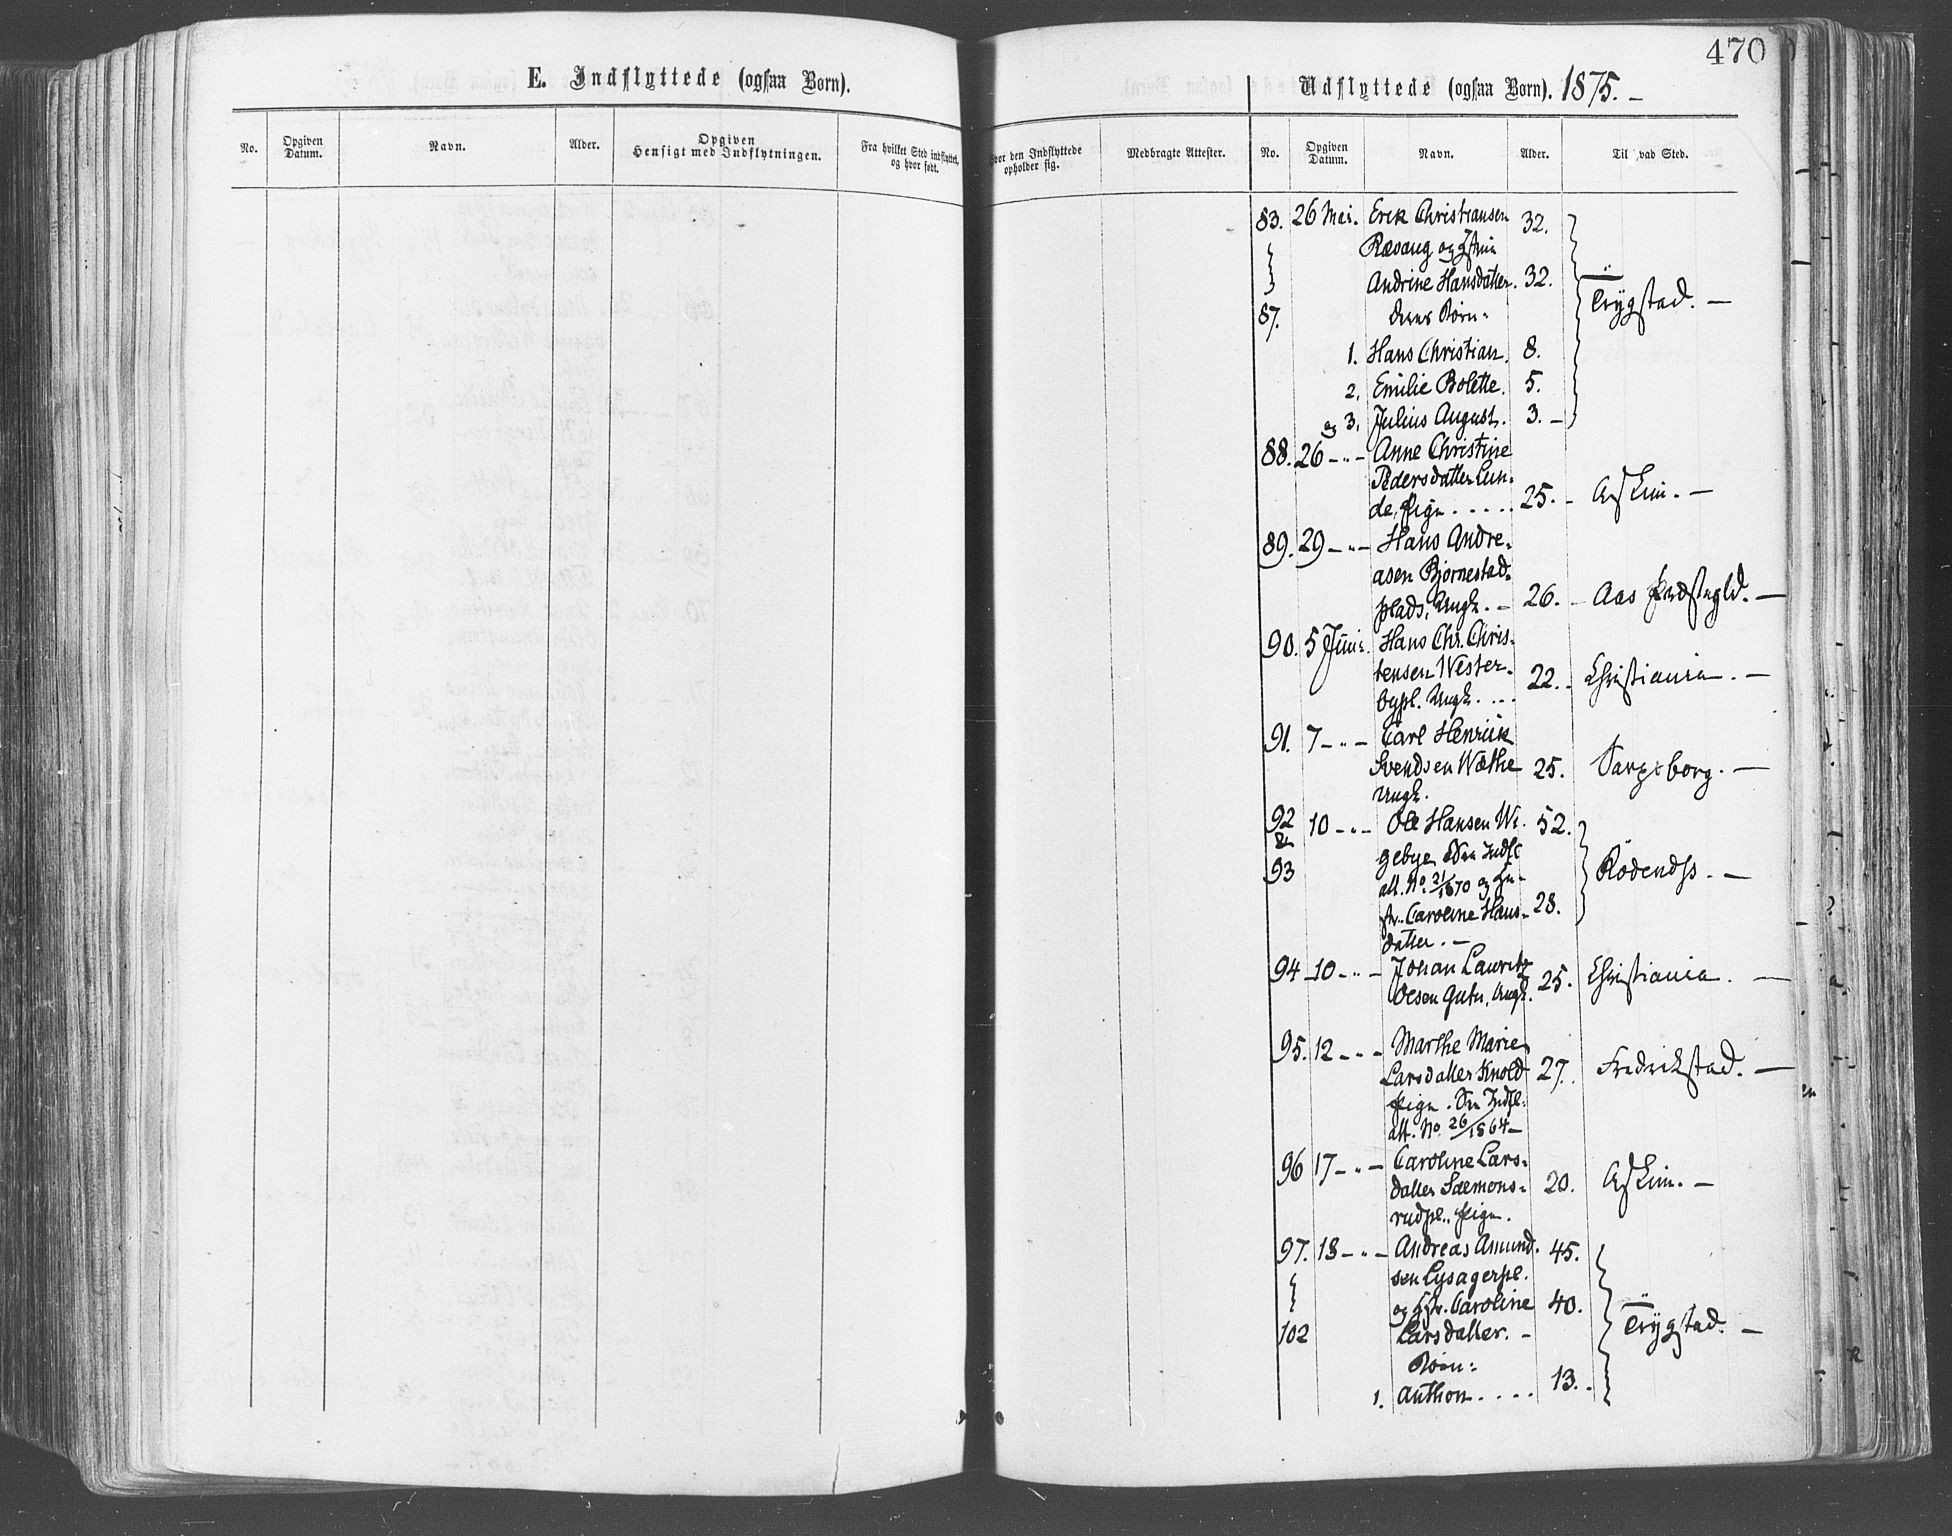 470
E. Indflyttede (ogsaa Børn).
Udflyttede (ogsaa Børn). 1875. –
No. Opgiven Datum. Navn. Alder. Opgiven Hensigt med Indflytningen. Fra hvilket Sted indflyttet, og hvor født. Hvor den Indflyttede opholder sig. Medbragte Attester.
No. Opgiven Datum. Navn. Alder. Til hvad Sted.
83. 26 Mai. Erik Christiansen 32.
Ræsaug og Hstru
Andrine Hansdatter. 32. Trygstad. –
87. deres Børn:
1. Hans Christian. 8.
2. Emilie Bolette. 5.
og 3. Julius August. 3. –
88. 26 – " – Anne Christine
Pedersdatter Lun-
de, Pige ..... 25. – Askim. –
89. 29 – " – Hans Andre-
asen Bjørnestad-
plads, Ungk. – 26. – Aas Præstegld. –
90. 5 Juni. Hans Chr. Chris-
tensen Wester-
bypl. Ungk. ... 22. – Christiania. –
91. 7 – " – Carl Henrik
Svendsen Wæthe 25. Sarpsborg. –
Ungk.
92 10 – " – Ole Hansen Wi- 52.
&
gebye Indfl
93 att. No. 21/1870 og Hu- Rødends. –
str. Caroline Hans- 28.
datter. –
94 – 10 – " – Johan Lauritz
Olsen Gutu, Ungk. 25. Christiania. –
95. 12 – " – Marthe Marie
Larsdatter Knold 27. Fredrikstad. –
Pige. See Indfl.
att. No. 26/1864 –
96 17 – " – Caroline Lars-
datter Sæmons- 20. Askim. –
rudpl., Pige.
97. 18 – " – Andreas Amund- 45.
sen Lysagerpl.
og Hstr. Caroline 40.
102 Larsdatter. – Trygstad. –
Børn:
1. Anthon .... 13. .